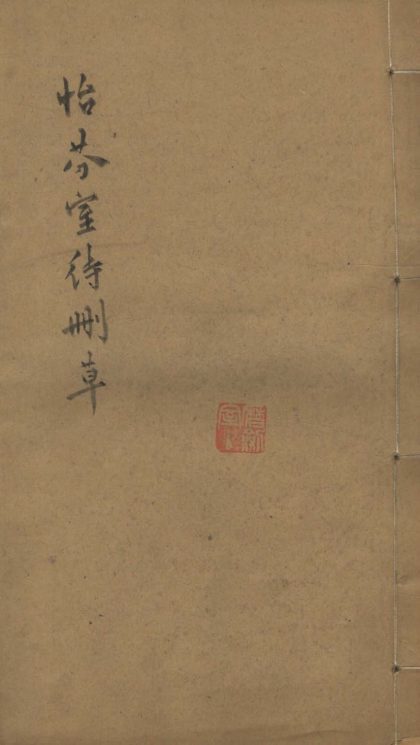 怡芬室待刪草